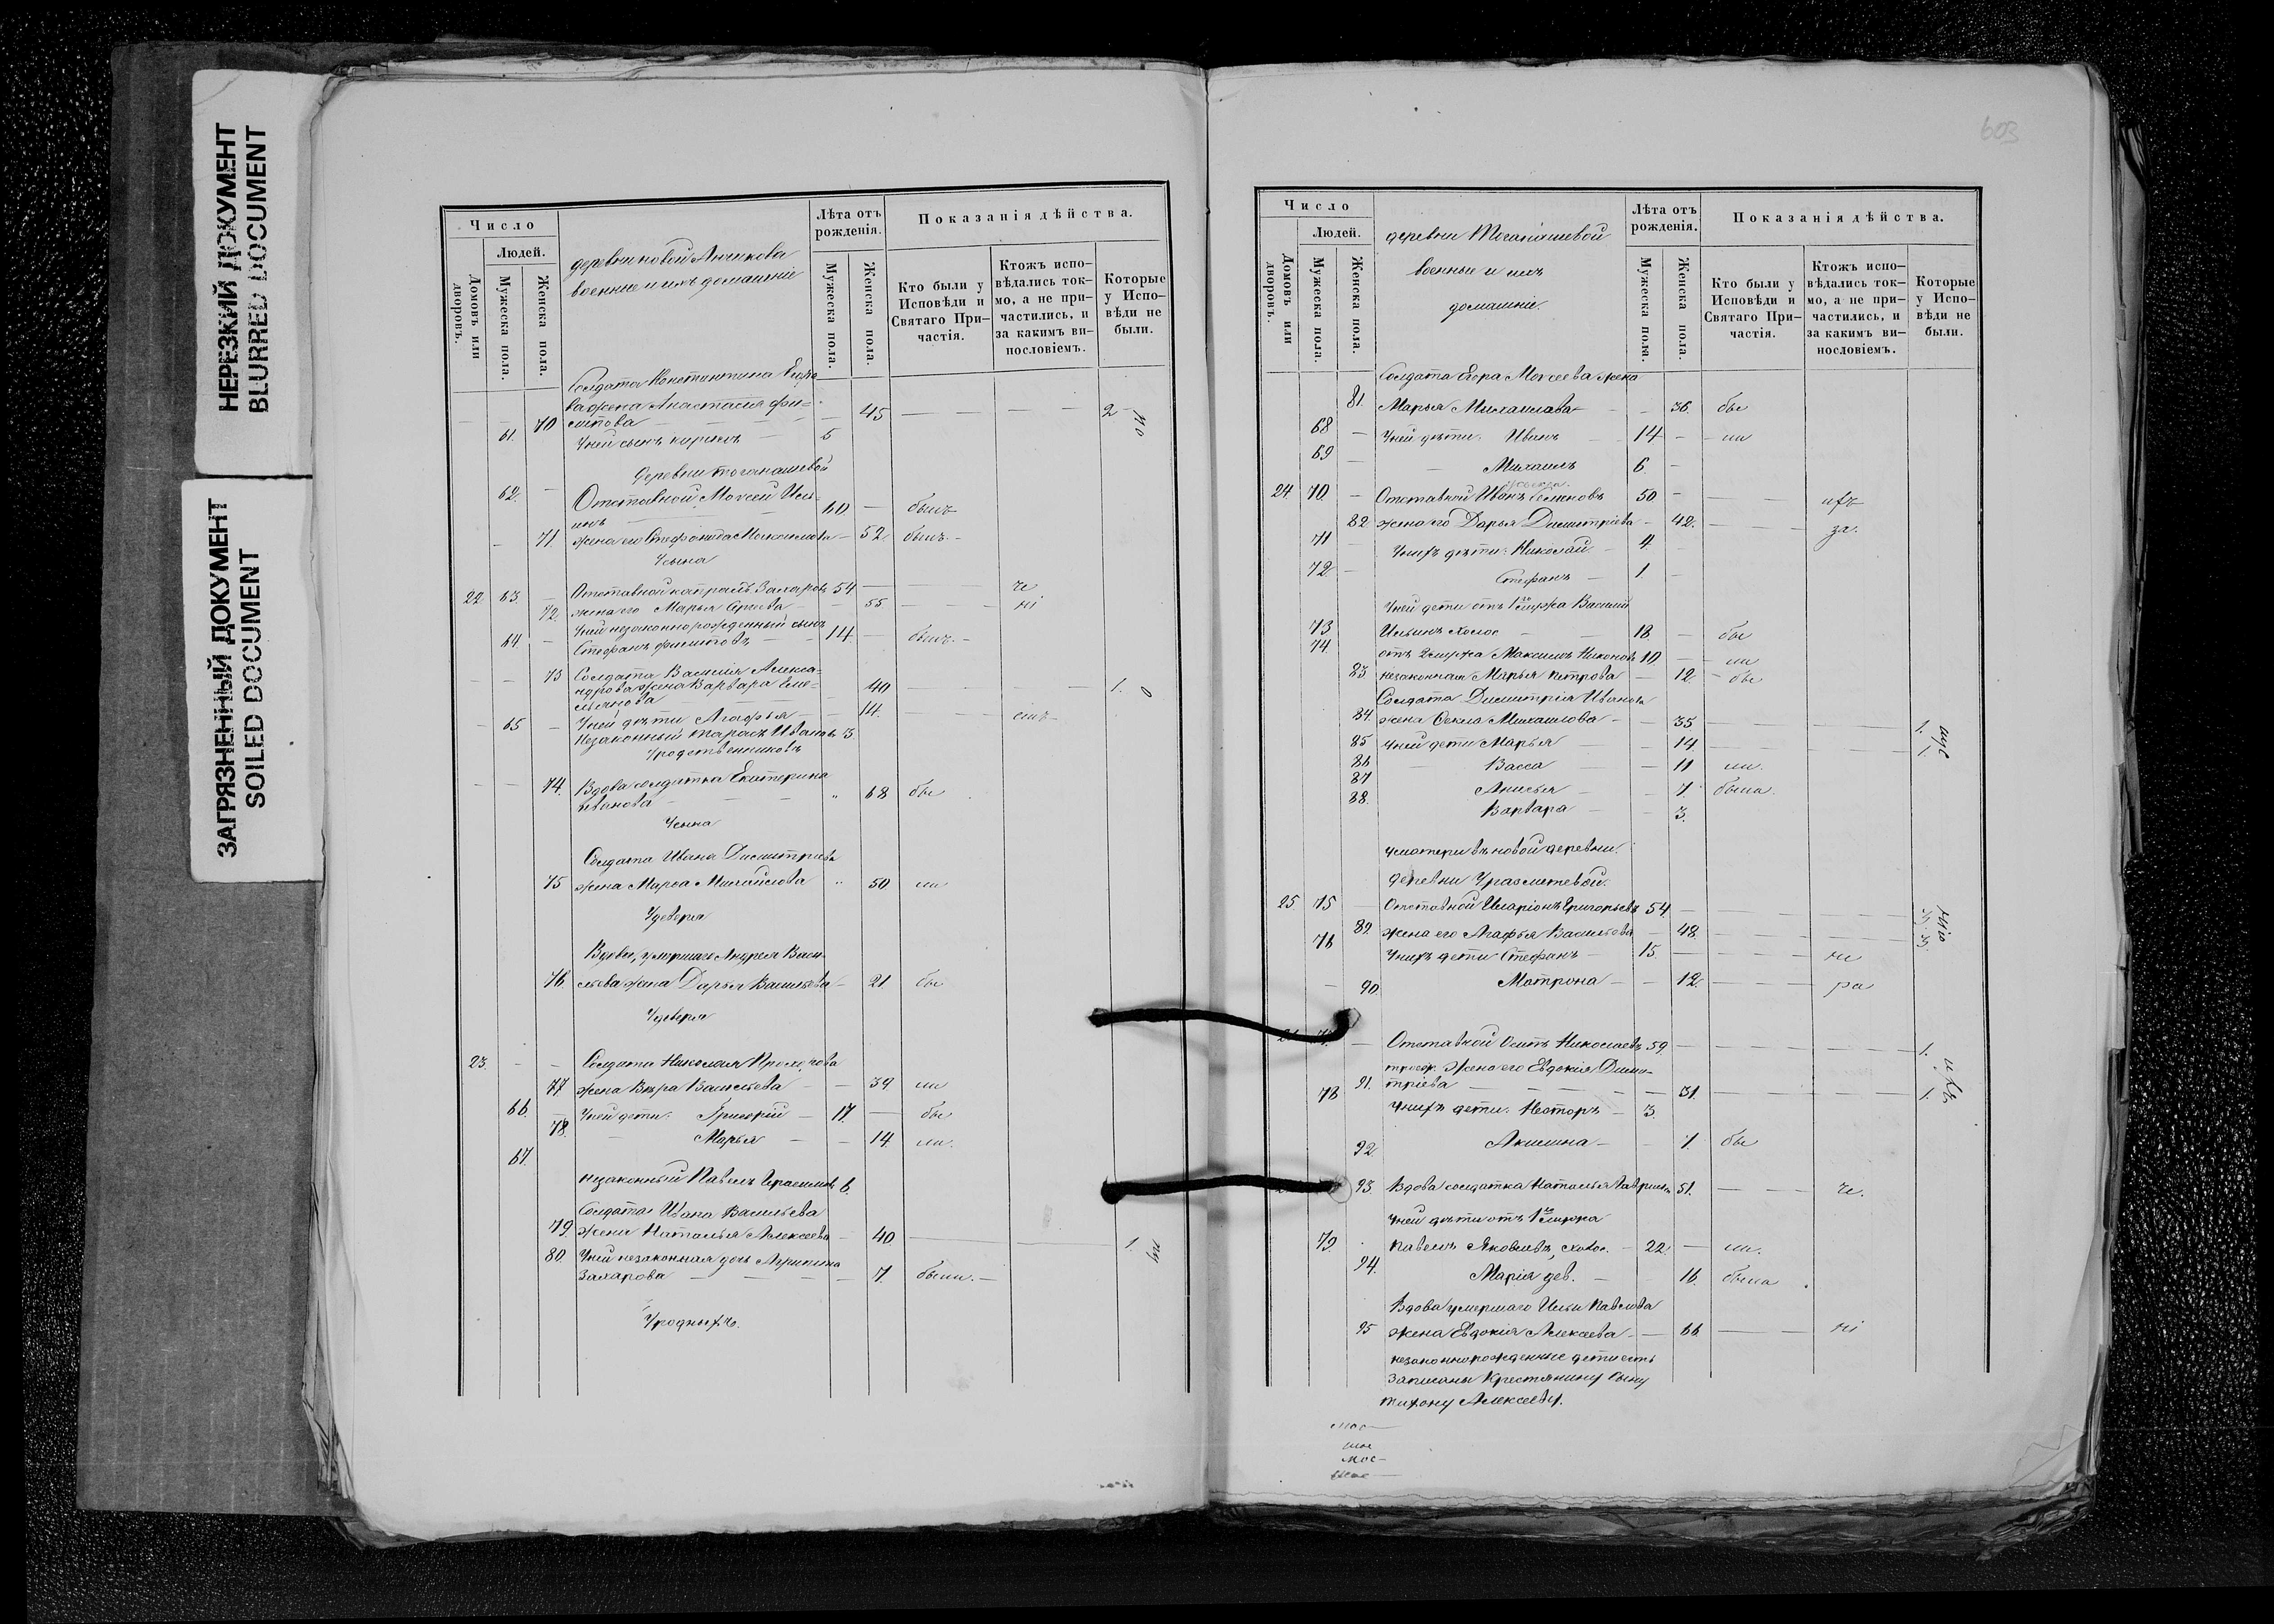 НЕРЕЗКИЙ ДОКУМЕНТ
BLURRED DOCUMENT
ЗАГРЯЗНЕННЫЙ ДОКУМЕНТ
SOILED DOCUMENT
Число
Людей.
Домовъ или дворовъ.
Мужеска пола.
Женска пола.
деревни новой
военные и ихъ домашніе
Лѣта отъ рожденія.
Мужеска пола.
Женска пола.
Показанія дѣйства.
Кто были у Исповѣди и Святаго Причастія.
Ктожъ исповѣдались токмо, а не причастились, и за какимъ винословіемъ.
Которые у Исповѣди не были.
Солдата Константина
ва жена Анастасія Фи=
70 липова 45 2
61. У ней сынъ 5
Деревни Тоганашевой
62. Отставной Моисей Иль=
инъ 60 былъ
71. жена его Стефанида Максимова 52 былъ.
У сына
22 63. Отставной капралъ Захаровъ 54 не
72. жена его Марья Сергѣева 55 ні
У ней незаконнорожденный сынъ
64. Стефанъ Филиповъ 14. былъ.
73 Солдата Василія Алекса=
ндрова жена Варвара Еме=
льянова 40 1. 0
У ней дѣти Агафья 14.
65 Незаконный Тарасъ Ивановъ 3
У родственниковъ
74. Вдова солдатка Екатерина
Иванова " 68 бы
У сына
Солдата Ивана Димитріева
75 жена Марфа Михайлова " 50 ли
У деверя
Вдова, умершаго Андрея Васи
76. льева жена Дарья Васильева 21 бы
У деверя
23. Солдата Николая Прохорова
77 жена Вѣра Васильева 39 ли
66. У ней дети. Григорій 17. бы
78. Марья 14. ли.
67. незаконный Павелъ Герасимовъ 6.
Солдата Ивана Васильева
79 жена Наталья Алексеева 40 1.
80. У ней незаконная дочь Агрипина
Захарова 7. были.
У родныхъ.
603
Число
Людей.
Домовъ или дворовъ.
Мужеска пола.
Женска пола.
деревни Тоганашевой
военные и ихъ
домашніе.
Лѣта отъ рожденія.
Мужеска пола.
Женска пола.
Показанія дѣйства.
Кто были у Исповѣди и Святаго Причастія.
Ктожъ исповѣдались токмо, а не причастились, и за какимъ винословіемъ.
Которые у Исповѣди не были.
Солдата Егора Моисеева жена
81. Марья Михаилова 36. бы
68 У ней дѣти. Иванъ 14 ли
69 Михаилъ 6
24 70. Отставной Иванъ 50 ихъ
82 жена его Дарья Димитріева 42. за.
71 У нихъ дѣти: Николай 4
72. Стефанъ 1.
У ней дети отъ 1го мужа Василій
73 Ильинъ холос 18 бы
74. отъ 2 мужа Максимъ Никоновъ 10 ли
83 незаконная Марья Петрова 12 бы
Солдата Димитрія Иванова
84. жена Фекла Михаилова 35 1.
85 У ней дети Марья 14 1.
86 Васса 11 ли.
87 Анисья 7 была.
88. Варвара 3.
У матери въ новой деревни.
деревни Уразметевой.
25 75 Отставной Иларіонъ Григорьевъ 54
89. жена его Агафья Васильева 48.
76 У нихъ дети Стефанъ 15. не
90. Матрона 12. ра
Отставной Осипъ Николаевъ 59 1.
жена его Евдокія Дими-
91. тріева 31. 1. ихъ
78 У нихъ дети. Несторъ 3.
92. Акилина 7. бы
93. Вдова солдатка Наталья Гаврилова 51. не.
У ней дѣти отъ 1го мужа
79. Павелъ Яковлевъ, холос. 22 ли.
94. Марія дев. 16 была
Вдова умершаго Ильи Павлова
95 жена Евдокія Алексеева 66 ні
незаконнорожденные дети есть
записаны крестьянину сыну
Тихону Алексееву.